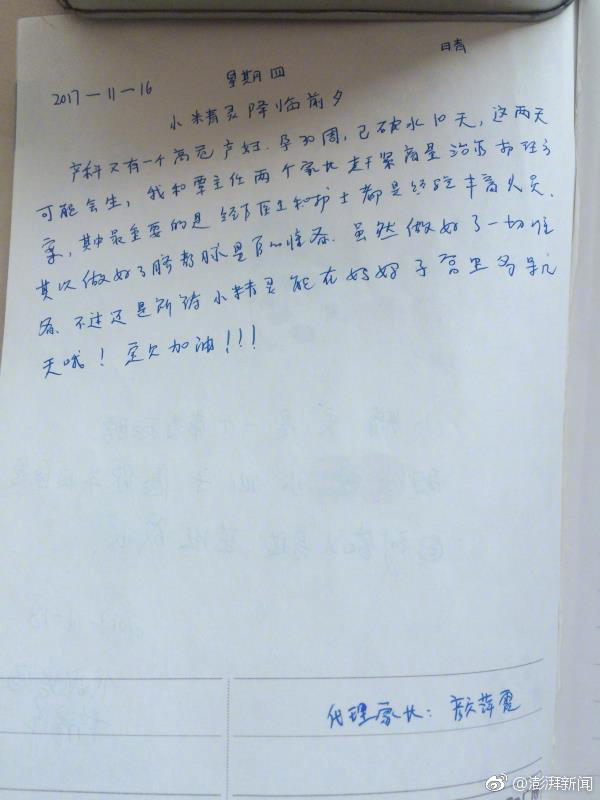 2017-11-16 星期四 晴
小精灵降临前夕
产科又有一个高危产妇.孕30周,已破水10天,这两天
可能会生,我和覃主任两个家长赶紧商量治疗护理方
案,其中最重要的是经治医生和护士都是经验丰富人员.
其次做好了脐静脉置管的准备.虽然做好了一切准
备.不过还是期待小精灵能在妈妈子宫里多呆几
天哦!宝贝加油!!!
代理家长:颜萍霞
@澎湃新闻